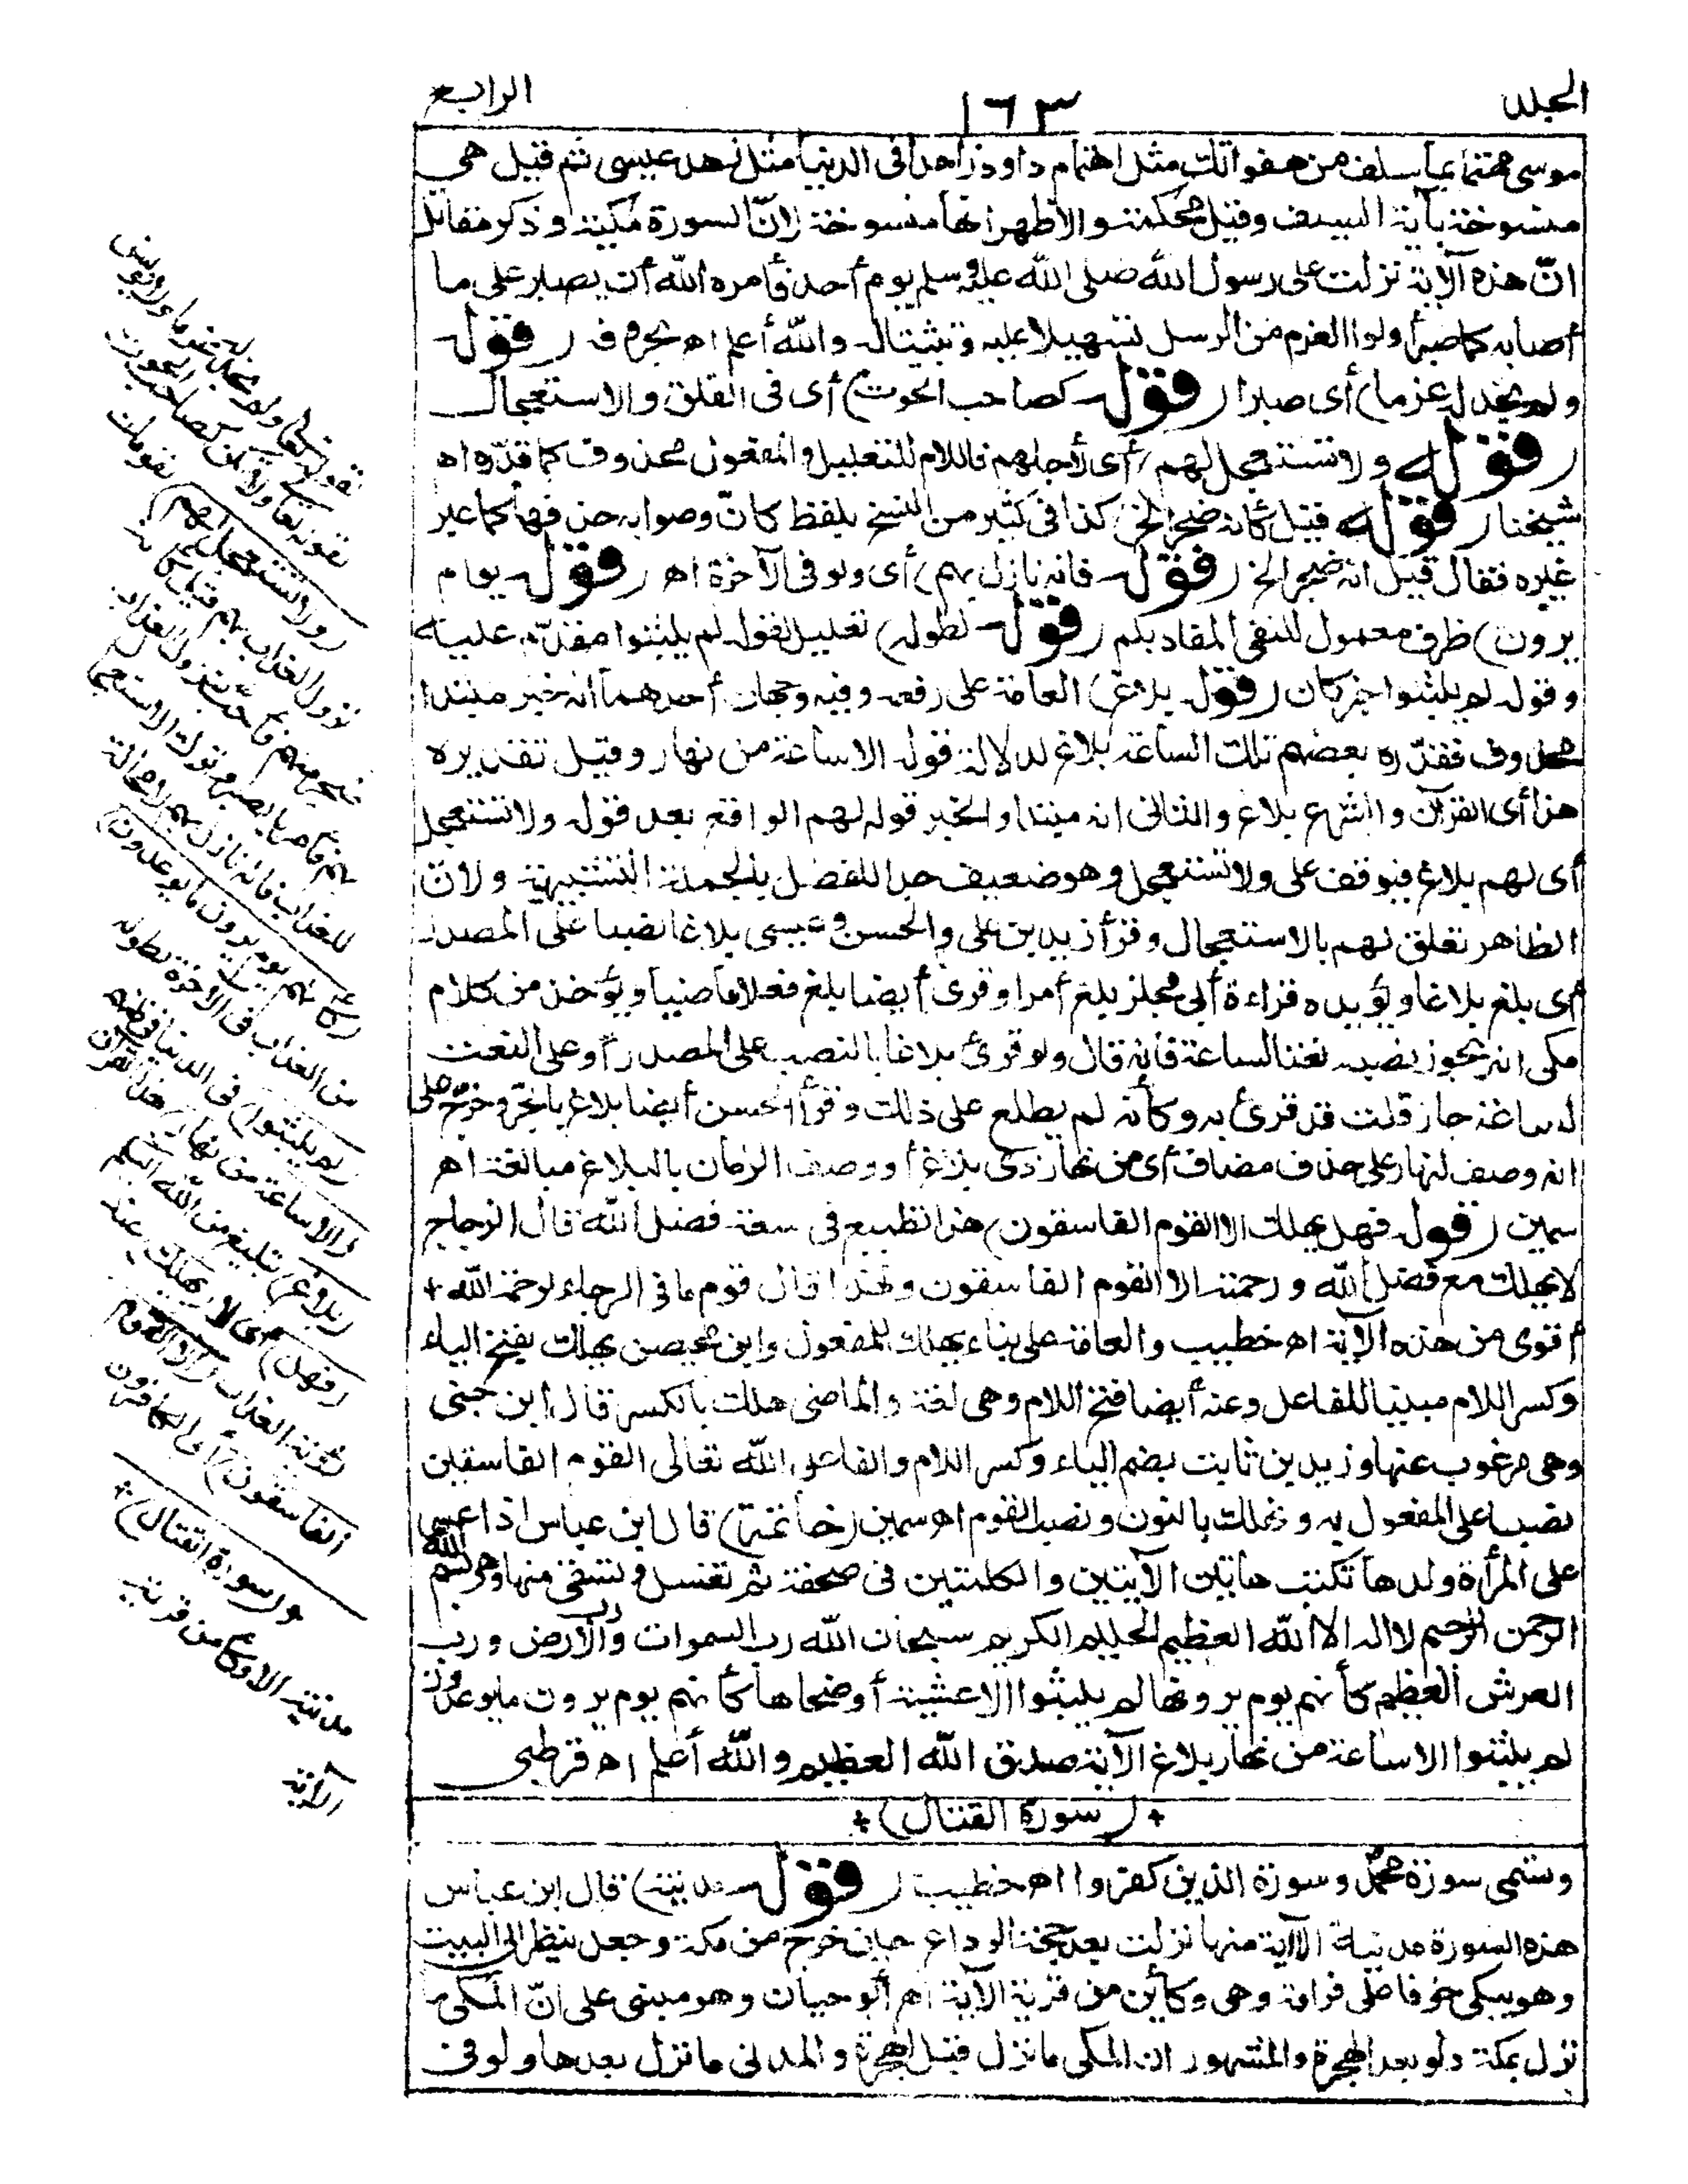 الجلد
١٦٣
الرابع
موسى مهتما بما سلف من هفواتك مثل اهتمام داود زاهدا فى الدنيا مثل زهد عيسى ثم قيل هى
منسوخة بآية السيف وقيل محكمة والأظهر انها منسوخة لانّ السورة مكية وذكر مقاتل
انّ هذه الآية نزلت على رسول الله صلى الله عليه وسلم يوم أحد فأمره الله أن يصبر على ما
أصابه كما صبر أولو العزم من الرسل تسهيلا عليه وتثبيتا له والله أعلم اه بحروفه (قوله
ولم نجد له عزما) أى صبرا (قوله كصاحب الحوت) أى فى القلق والاستعجال
(قوله ولا تستعجل لهم) أى لأجلهم فاللام للتعليل والمفعول محذوف كما قدّره اه
شيخنا (قوله قيل كأنه ضجر الخ) كذا فى كثير من النسخ بلفظ كانّ وصوابه حذفها كما عبر
غيره فقال قيل انه ضجر الخ (قوله فانه نازل بهم) أى ولو فى الآخرة اه (قوله يوم
يرون) ظرف معمول للنفى المفاد بلم (قوله لطوله) تعليل لقوله لم يلبثوا مقدّم عليه
وقوله لم يلبثوا خبر كان (قوله بلاغ) العامة على رفعه وفيه وجهان أحدهما انه خبر مبتدا
محذوف فقدّره بعضهم تلك الساعة بلاغ لدلالة قوله الا ساعة من نهار وقيل تقديره
هذا أى القرآن والشرع بلاغ والثانى انه مبتدا والخبر قوله لهم الواقع بعد قوله ولا تستعجل
أى لهم بلاغ فيوقف على ولا تستعجل وهو ضعيف جدا للفصل بالجملة التشبيهية ولانّ
الظاهر تعلق لهم بالاستعجال وقرأ زيد بن على والحسن وعيسى بلاغا نصبا على المصدر
أى بلغ بلاغا ويؤيده قراءة أبى مجلز بلغ أمرا وقرئ أيضا بلغ فعلا ماضيا ويؤخذ من كلام
مكى انه يجوز نصبه نعتا لساعة فانه قال ولو قرئ بلاغا بالنصب على المصدر أو على النعت
لساعة جاز قلت قد قرئ به وكأنه لم يطلع على ذلك وقرأ الحسن أيضا بلاغ بالجر وخرّج على
انه وصف لنهار على حذف مضاف أى من نهار ذى بلاغ أو وصف الزمان بالبلاغ مبالغة اه
سمين (قوله فهل يهلك الا القوم الفاسقون) هذا تطميع فى سعة فضل الله قال الزجاج
لا يهلك مع فضل الله ورحمته الا القوم الفاسقون ولهذا قال قوم ما فى الرجاء لرحمة الله +
أقوى من هذه الآية اه خطيب والعامة على بناء يهلك للمفعول وابن محيصن يهلك بفتح الياء
وكسر اللام مبنيا للفاعل وعنه أيضا فتح اللام وهى لغة والماضى هلك بالكسر قال ابن جنى
وهى مرغوب عنها وزيد بن ثابت بضم الياء وكسر اللام والفاعل الله تعالى القوم الفاسقين
نصب على المفعول به ونهلك بالنون ونصب القوم اه سمين (خاتمة) قال ابن عباس اذا عسر
على المرأة ولدها تكتب هاتين الآيتين والكلمتين فى صحفة ثم تغسل وتسقى منها وهى بسم الله
الرحمن الرحيم لا اله الا الله العظيم الحليم الكريم سبحان الله رب السموات ورب الأرض ورب
العرش العظيم كأنهم يوم يرونها لم يلبثوا الا عشية أو ضحاها كأنهم يوم يرون ما يوعدون
لم يلبثوا الا ساعة من نهار بلاغ الآية صدق الله العظيم والله أعلم اه قرطبى
+ (سورة القتال) +
وتسمى سورة محمد وسورة الذين كفروا اه خطيب (قوله مدنية) قال ابن عباس
هذه السورة مدنية الا آية منها نزلت بعد حجة الوداع حين خرج من مكة وجعل ينظر الى البيت
وهو يبكى خوفا على فراقه وهى وكأين من قرية الآية اه أبو حيان وهو مبنى على انّ المكى ما
نزل بمكة ولو بعد الهجرة والمشهور ان المكى ما نزل قبل الهجرة والمدنى ما نزل بعدها ولو فى
لقوله تعالى ولم نجد له عزما ولا يونس
لقوله تعالى ولا تكن كصاحب الحوت
(ولا تستعجل لهم) لقومك
نزول العذاب بهم قيل كأنه
ضجر منهم فأحب نزول العذاب
بهم فأمر بالصبر وترك الاستعجال
للعذاب فانه نازل بهم لا محالة
(كأنهم يوم يرون ما يوعدون)
من العذاب فى الآخرة لطوله
(لم يلبثوا) فى الدنيا فى ظنهم
(الا ساعة من نهار) هذا القرآن
(بلاغ) تبليغ من الله اليكم
(فهل) أى لا (يهلك) عند
رؤية العذاب (الا القوم
الفاسقون) أى الكافرون
(سورة القتال)
مدنية الا وكأين من قرية
الآية